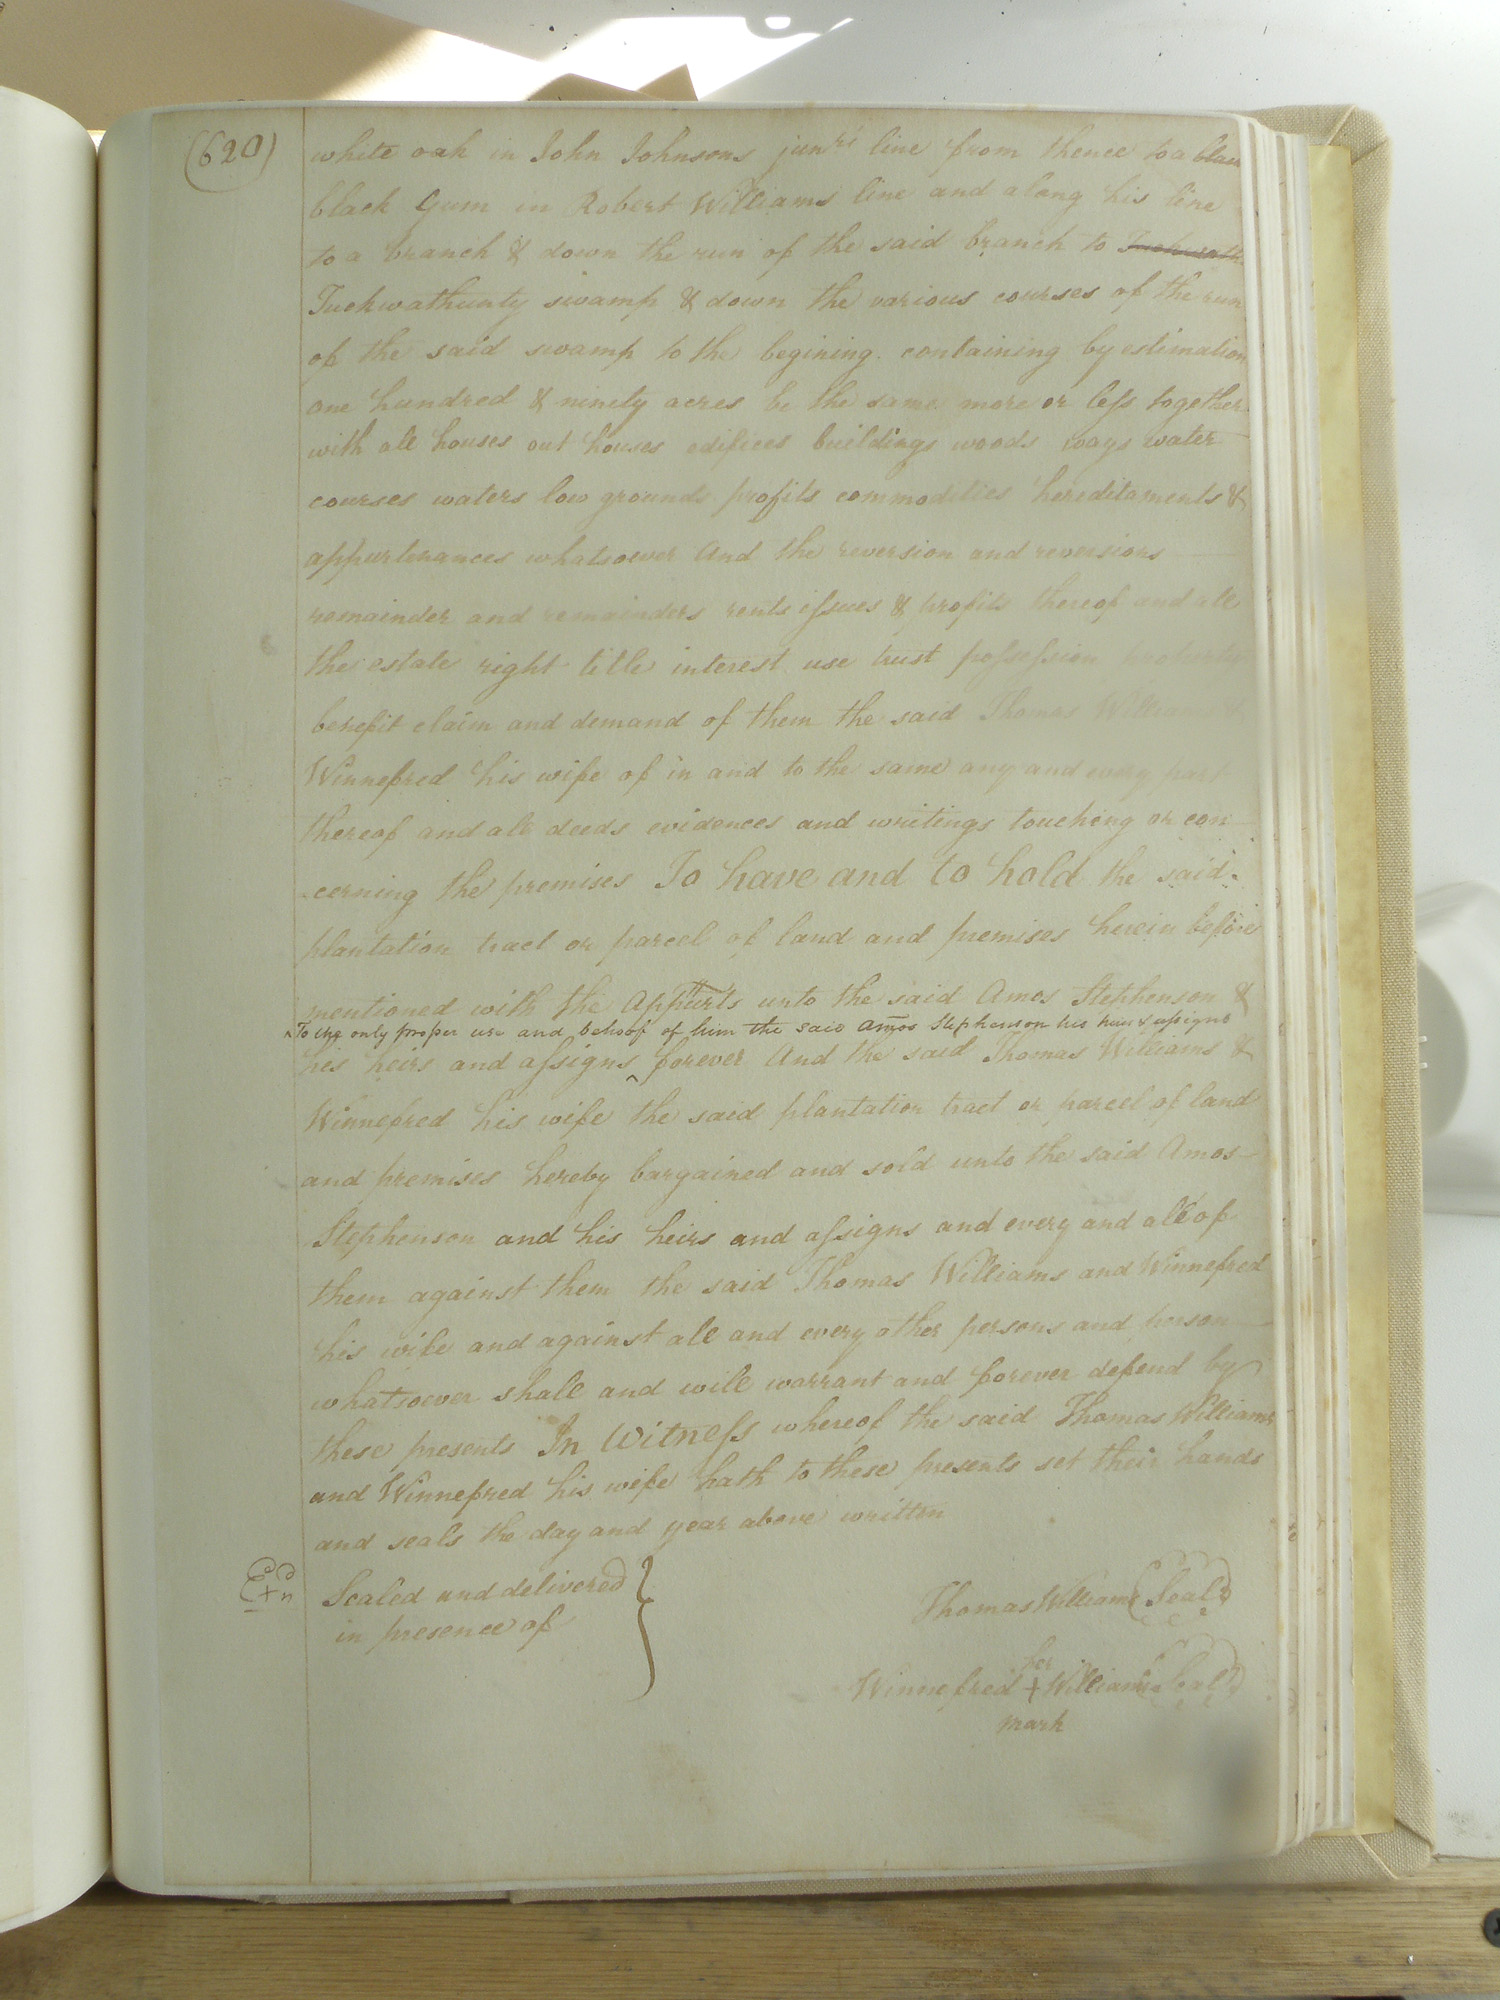 (620)
white oak in John Johnsons junrs line from thence to a blac
black Gum in Robert Williams line and along his line
to a branch & down the run of the said branch to
Tuckwathunty swamp & down the various courses of the run
of the said swamp to the begining containing by estimation
one hundred & ninety acres be the same more or less together
with all houses out houses edifices buildings woods ways water
courses waters low grounds profits commodities hereditaments &
appurtenances whatsoever And the reversion and reversions
remainder and remainders rents issues & profits thereof and all
the estate right title interest use trust possession property
benefit claim and demand of them the said Thomas Williams &
Winnefred his wife of in and to the same any and every part
thereof and all deeds evidences and writings touching or con
-cerning the premises To have and to hold the said
plantation tract or parcel of land and premises herein before
mentioned with the Appurts unto the said Amos Stephenson &
^ To the only proper use and behoof of him the said Amos Stephenson his heirs & assigns
his heirs and assigns ^ forever And the said Thomas Williams &
Winnefred his wife the said plantation tract or parcel of land
and premises hereby bargained and sold unto the said Amos
Stephenson and his heirs and assigns and every and all of
them against them the said Thomas Williams and Winnefred
his wife and against all and every other persons and person
whatsoever shall and will warrant and forever defend by
these presents In Witness whereof the said Thomas Williams
and Winnefred his wife hath to these presents set their hands
and seals the day and year above written
Sealed and delivered
in presence of
Thomas Williams (Seal)
her
Winnefred + Williams (Seal)
mark